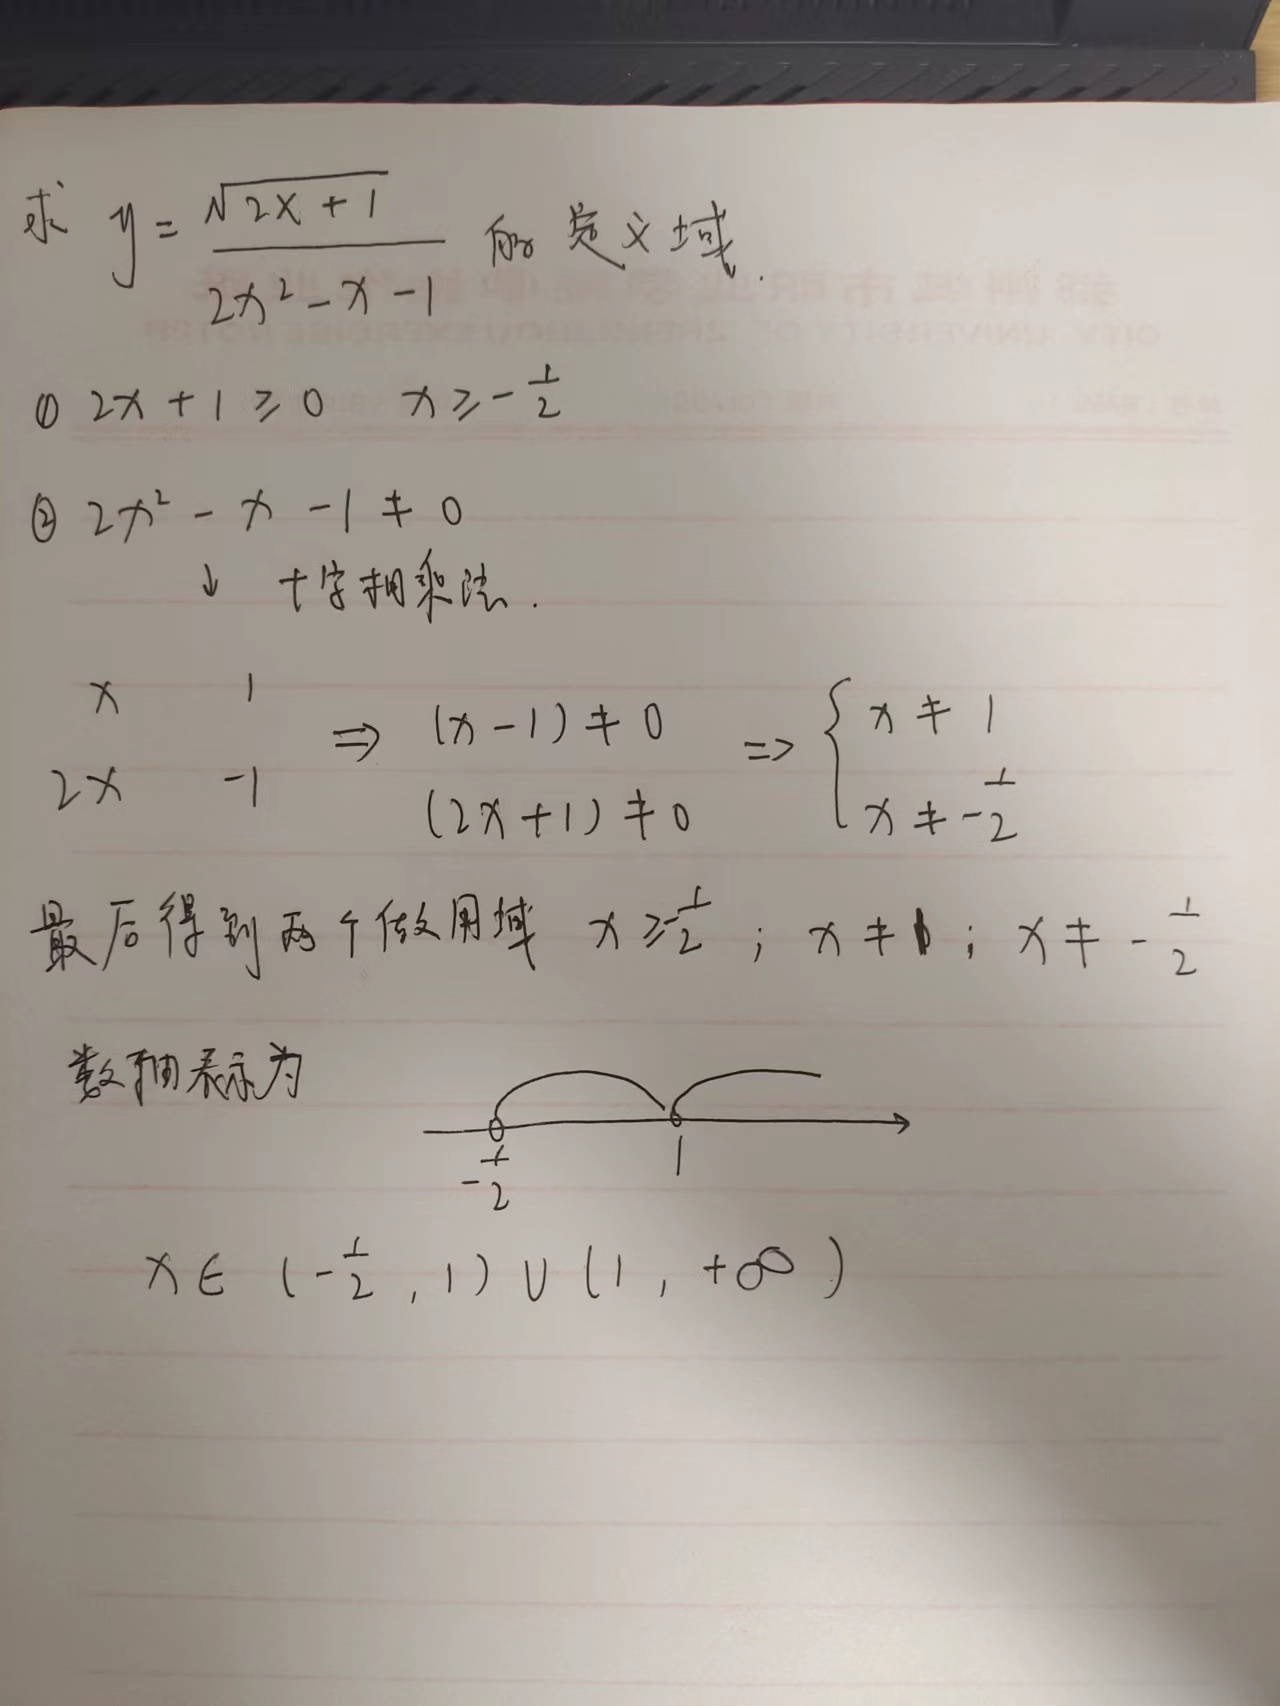 求 y = √(2x + 1) / (2x² - x - 1) 的定义域.
① 2x + 1 ≥ 0 x ≥ -1/2
② 2x² - x - 1 ≠ 0
↓ 十字相乘法.
x 1
2x -1
⇒ (x - 1) ≠ 0
(2x + 1) ≠ 0
=> { x ≠ 1
x ≠ -1/2
最后得到两个做用域 x ≥ -1/2 ; x ≠ 1 ; x ≠ -1/2
数轴表示为
-1/2 1
x ∈ (-1/2 , 1) ∪ (1 , +∞)